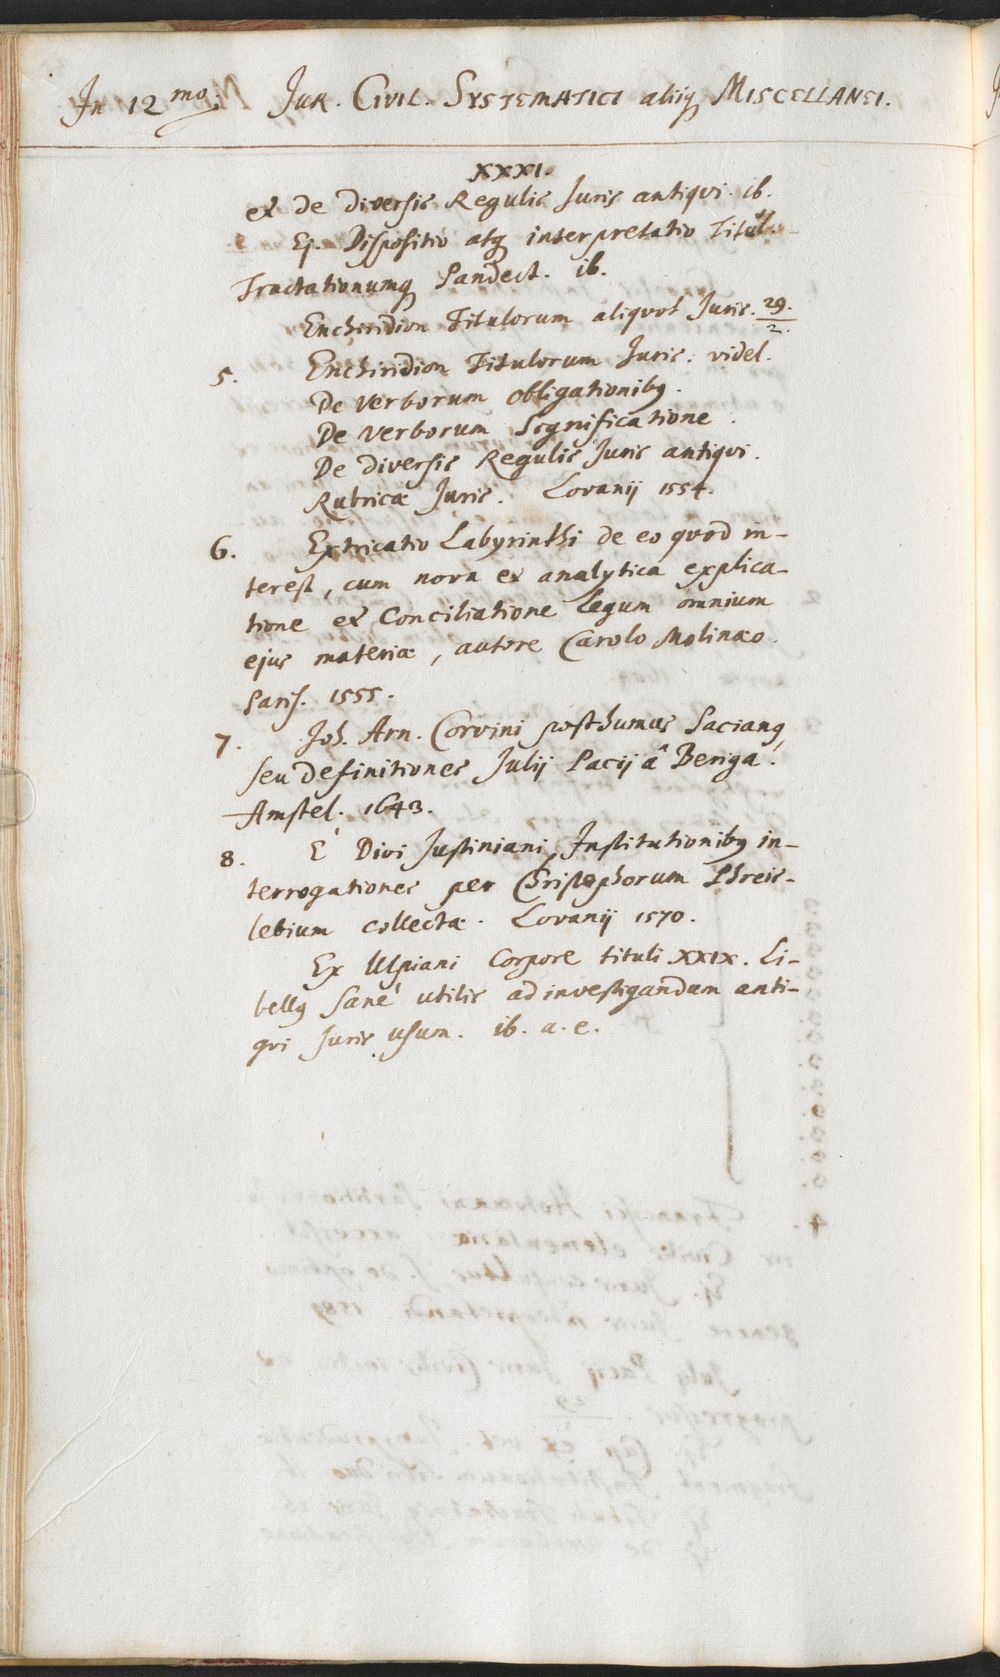 In 12mo. Jur. Civil. Systematici aliiq Miscellanei.
XXXI.
et de diversis Regulis Juris antiqvi. ib.
Ej. Dispositio atq interpretatio Titul.
Tractationumq Pandect. ib.
Enchiridion Titulorum aliqvot Juris. 29./2.
5. Enchiridion Titulorum Juris: videl.
De Verborum obligationibq.
De Verborum Significatione.
De diversis Regulis Juris antiqvi.
Rubricæ Juris. Lovanij 1554.
6. Extricatio Labyrinthi de eo qvod in-
terest, cum nova et analytica explica-
tione et Conciliatione Legum omnium
ejus materiæ, autore Carolo Molinæo.
Paris. 1555.
7. Joh. Arn. Corvini posthumus Pacianq,
seu definitiones Julij Pacij â Beriga.
Amstel. 1643.
8. E Divi Justiniani Institutionibq in-
terrogationes per Christophorum Phreis-
lebium collectæ. Lovanij 1570.
Ex Ulpiani Corpore tituli XXIX. Li-
bellq sanè utilis ad investigandum anti-
qvi Juris usum. ib. a. e.